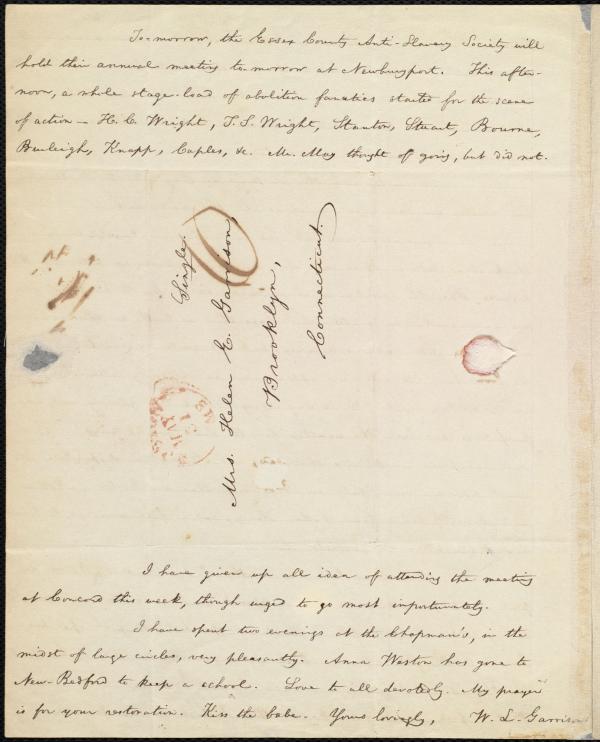 To-morrow, the Essex County Anti-Slavery Society will
hold their annual meeting to-morrow at Newburyport. This after-
noon, a whole stage-load of abolition fanatics started for the scene
of action — H. C. Wright, J. S. Wright, Stanton, Stuart, Bourne,
Burleigh, Knapp, Caples, &c. Mr. May thought of going, but did not.
Single.
Mrs. Helen E. Garrison,
Brooklyn,
Connecticut.
MAY
I have given up all idea of attending the meeting
at Concord this week, though urged to go most importunately.
I have spent two evenings at the Chapman's, in the
midst of large circles, very pleasantly. Anna Weston has gone to
New-Bedford to keep a school. Love to all devotedly. My prayer
is for your restoration. Kiss the babe. Yours lovingly, W. L. Garrison